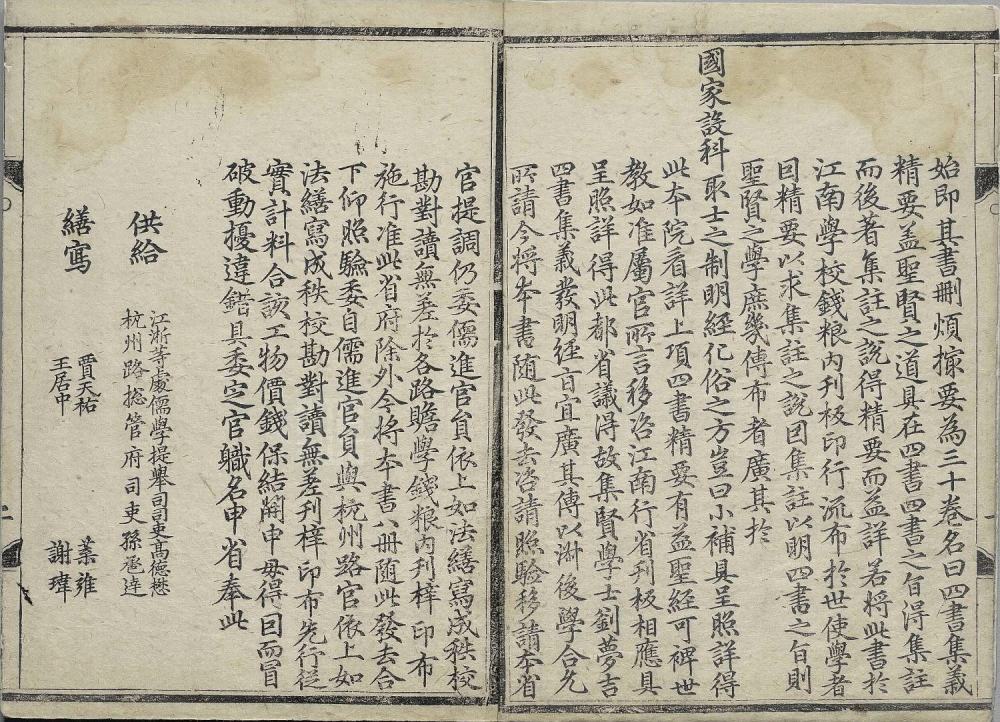 始即其書刪煩撮要為三十卷名曰四書集義
精要盖聖賢之道具在四書四書之旨得集註
而後著集註之說得精要而益詳若將此書於
江南學校錢粮内刊板印行流布於世使學者
因精要以求集註之說因集註以明四書之旨則
聖賢之學庶幾傳布者廣其於
國家設科取士之制明經化俗之方豈曰小補具呈照詳得
此本院看詳上項四書精要有益聖經可裨世
教如准属官所言移咨江南行省刊板相應具
呈照詳得此都省議得故集賢學士劉夢吉
四書集義發明經旨宜廣其傳以淑後學合允
所請今將本書随此發去咨請照驗移請本省
官提調仍委儒進官員依上如法繕寫成秩校
勘對讀無差於各路贍學錢粮内刊梓印布
施行准此省府除外今將本書八册随此發去合
下仰照驗委自儒進官員與杭州路官依上如
法繕寫成秩校勘對讀無差刊梓印布先行從
實計料合該工物價錢保結開申毋得因而冒
破動擾違錯具委定官職名申省奉此
供給
江浙等處儒學提舉司司吏髙德懋
杭州路揔管府司吏孫丞逹
繕寫
賈天祐
王居中
葉雍
謝瑋